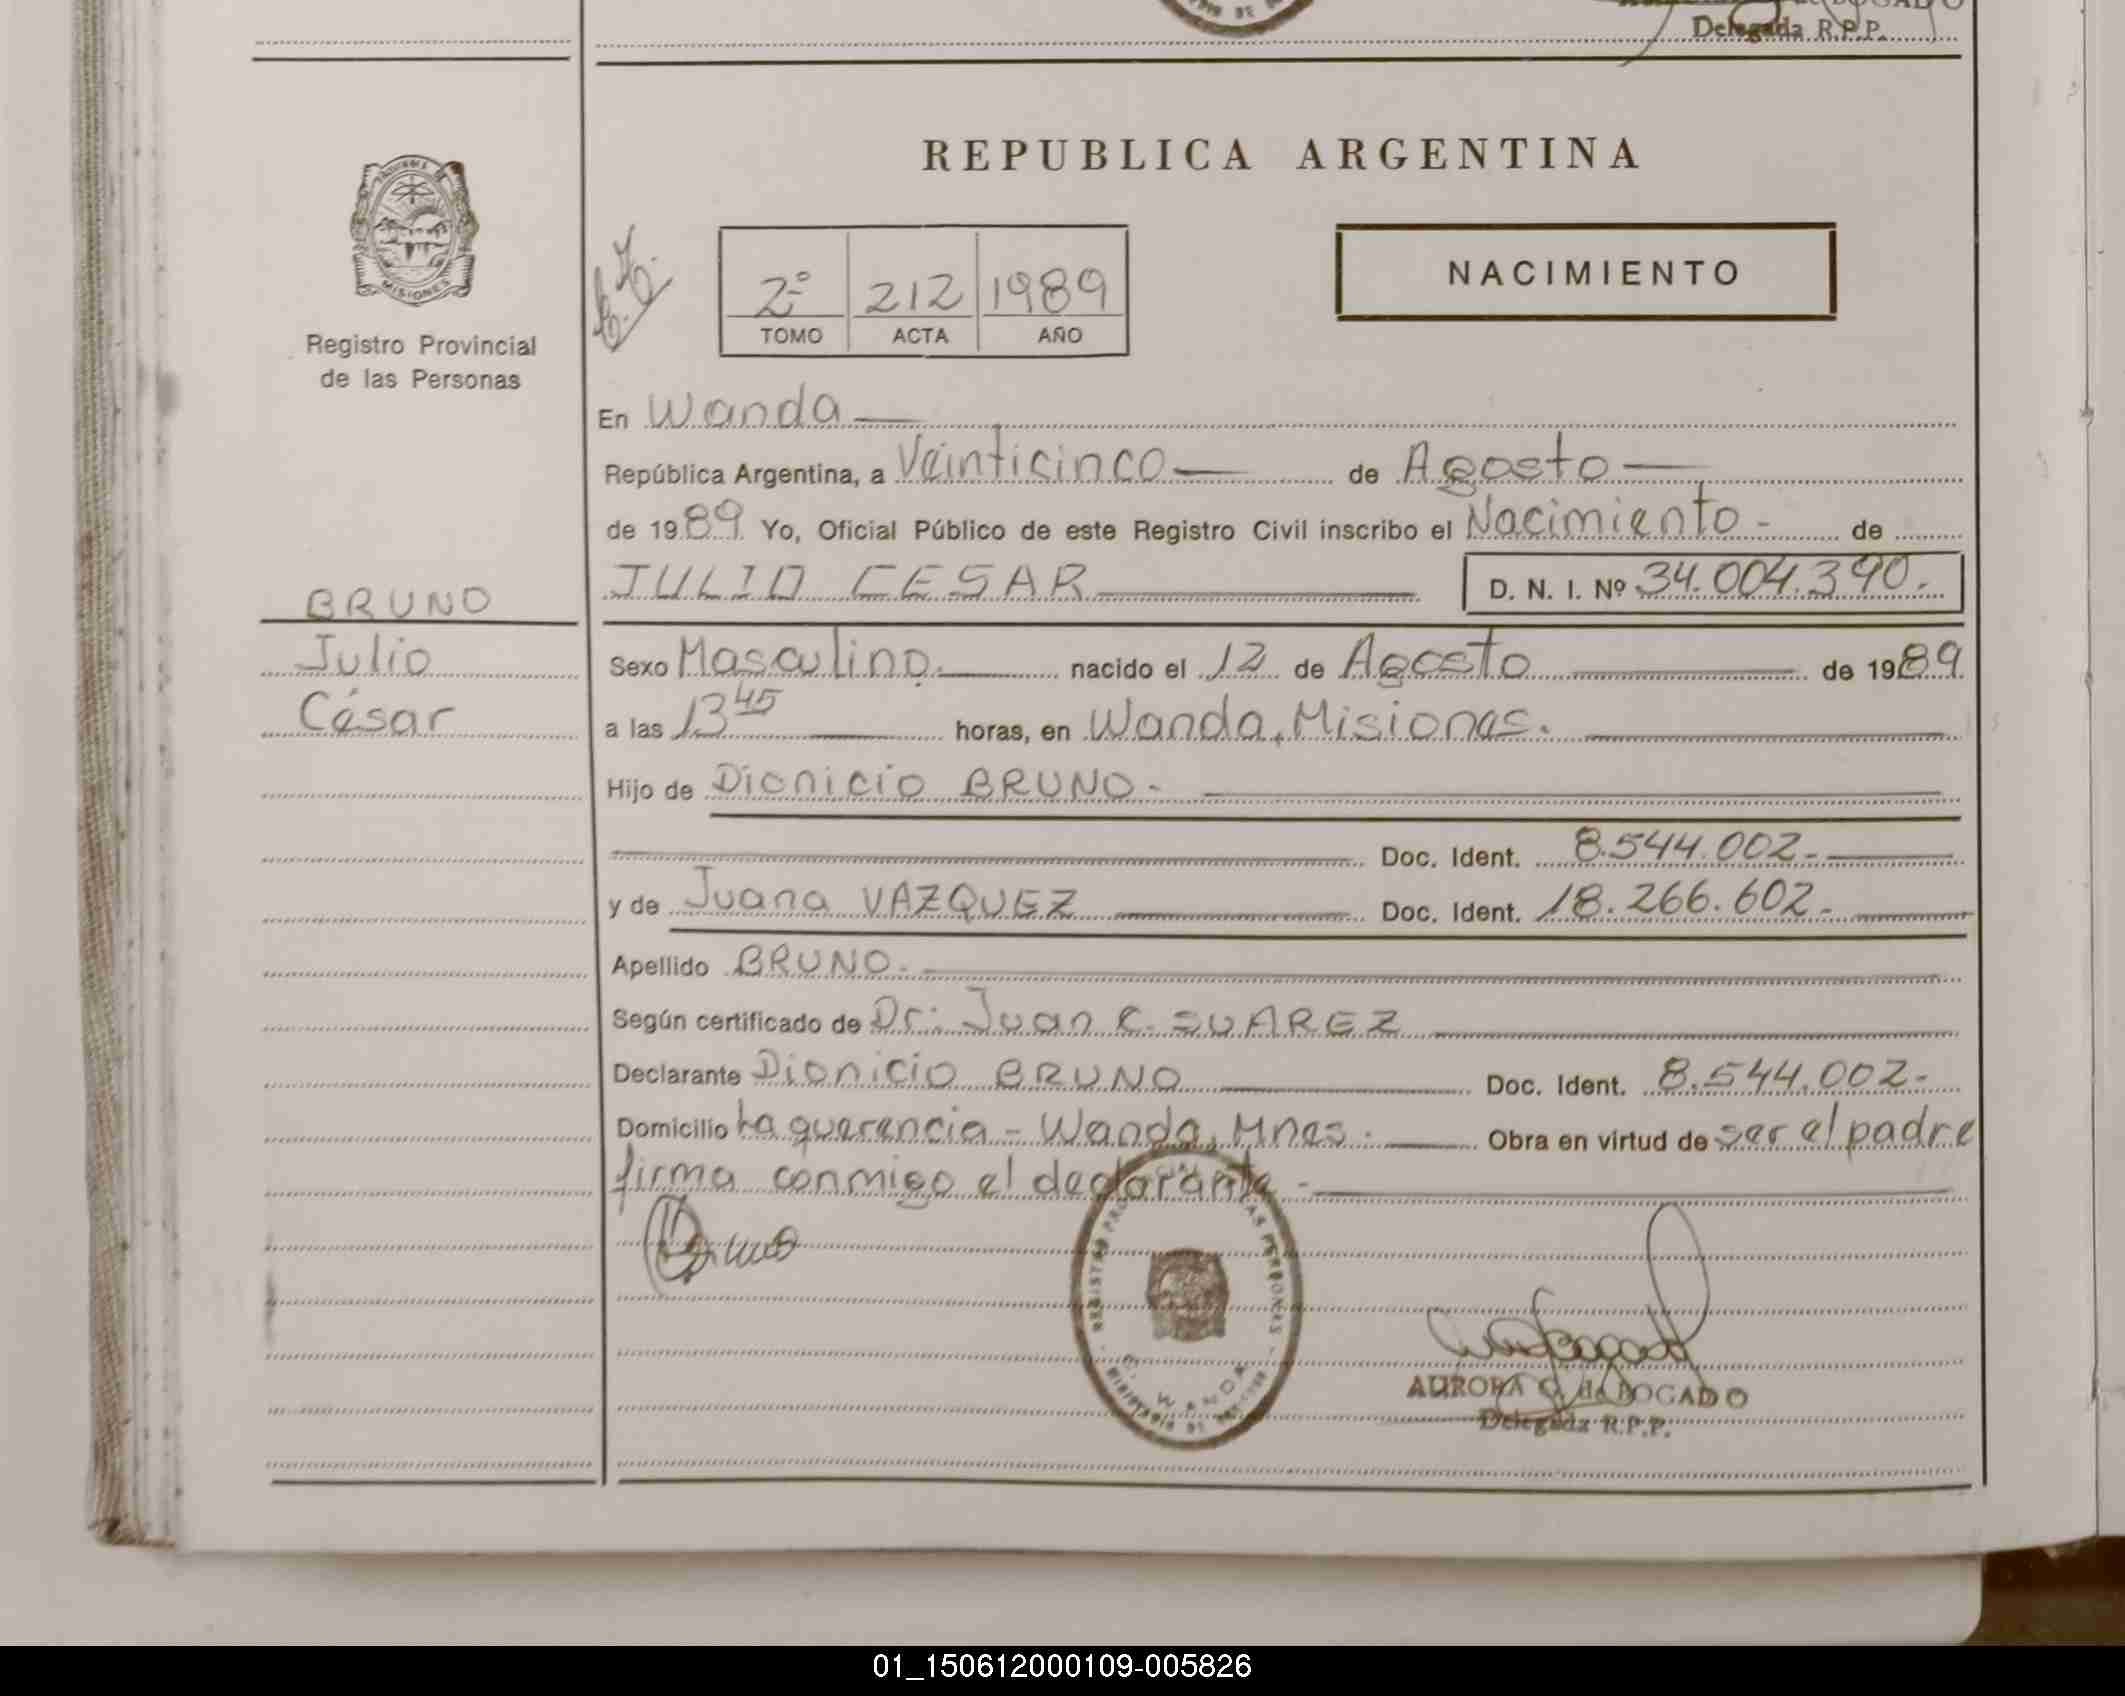 Delegada R.P.P.
REPUBLICA ARGENTINA
MISIONES
Registro Provincial
de las Personas
2º 212 1989
TOMO ACTA AÑO
NACIMIENTO
En Wanda
República Argentina, a Veinticinco de Agosto
de 1989 Yo, Oficial Público de este Registro Civil inscribo el Nacimiento - de
JULIO CESAR D. N. I. Nº 34.004.390.
BRUNO
Julio
César
Sexo Masculino. nacido el 12 de Agosto de 1989
a las 13 45 horas, en Wanda, Misiones.
Hijo de Dionicio BRUNO.-
Doc. Ident. 8.544.002.-
y de Juana VAZQUEZ Doc. Ident. 18.266.602.-
Apellido BRUNO.
Según certificado de Dr: Juan C. SUAREZ
Declarante Dionicio BRUNO Doc. Ident. 8.544.002-
Domicilio La querencia - Wanda, Mnes. Obra en virtud de ser el padre
firma conmigo el declarante -
Bruno
REGISTRO PROVINCIAL DE LAS PERSONAS
WANDA
MINISTERIO DE
AURORA G. de BOGADO
Delegada R.P.P.
01_150612000109-005826